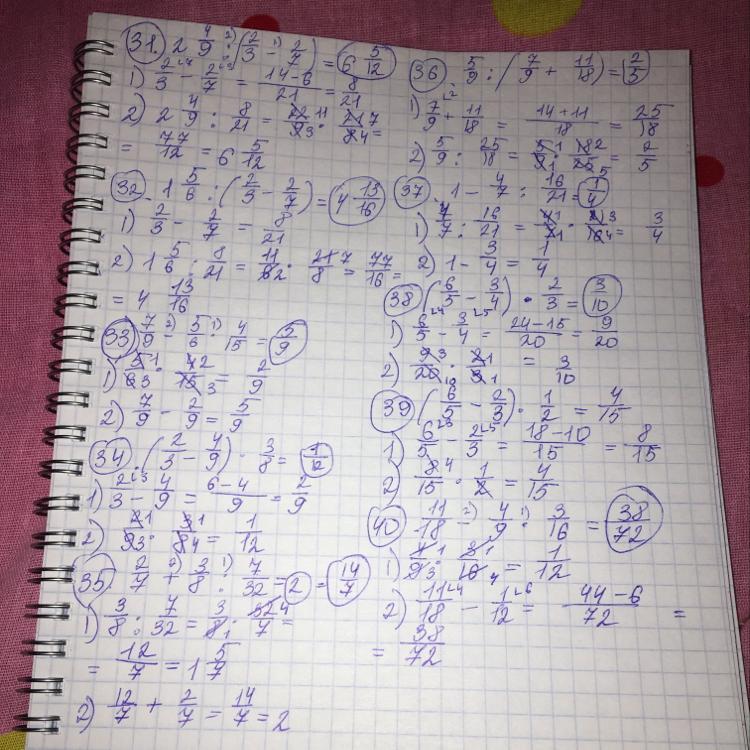 31. 2 4/9 : (2/3 - 2/7) = 6 5/12
1) 2/3 - 2/7 = 14-6/21 = 8/21
2) 2 4/9 : 8/21 = 22 11/9 3 · 21 7/8 4 =
= 77/12 = 6 5/12
32. 1 5/6 : (2/3 - 2/7) = 4 13/16
1) 2/3 - 2/7 = 8/21
2) 1 5/6 : 8/21 = 11/6 2 · 21 7/8 = 77/16 =
= 4 13/16
33 7/9 - 5/6 · 4/15 = 5/9
1) 5 1/6 3 · 4 2/15 3 = 2/9
2) 7/9 - 2/9 = 5/9
34. (2/3 - 4/9) · 3/8 = 1/12
1) 2/3 - 4/9 = 6-4/9 = 2/9
2) 2 1/9 3 · 3 1/8 4 = 1/12
35 2/7 + 3/8 : 7/32 = 2 = 14/7
1) 3/8 : 7/32 = 3/8 1 · 32 4/7 =
= 12/7 = 1 5/7
2) 12/7 + 2/7 = 14/7 = 2
36 5/9 : (7/9 + 11/18) = 2/5
1) 7/9 + 11/18 = 14+11/18 = 25/18
2) 5/9 : 25/18 = 5 1/9 1 · 18 2/25 = 2/5
37. 1 - 4/7 : 16/21 = 1/4
1) 4/7 : 16/21 = 4 1/7 1 · 21 3/16 4 = 3/4
2) 1 - 3/4 = 1/4
38 (6/5 - 3/4) · 2/3 = 3/10
1) 6/5 - 3/4 = 24-15/20 = 9/20
2) 9 3/20 10 · 2 1/3 1 = 3/10
39 (6/5 - 2/3) · 1/2 = 4/15
1) 6/5 - 2/3 = 18-10/15 = 8/15
2) 8 4/15 · 1/2 = 4/15
40 11/18 - 4/9 · 3/16 = 38/72
1) 4 1/9 3 · 3 1/16 4 = 1/12
2) 11/18 - 1/12 = 44-6/72 =
= 38/72